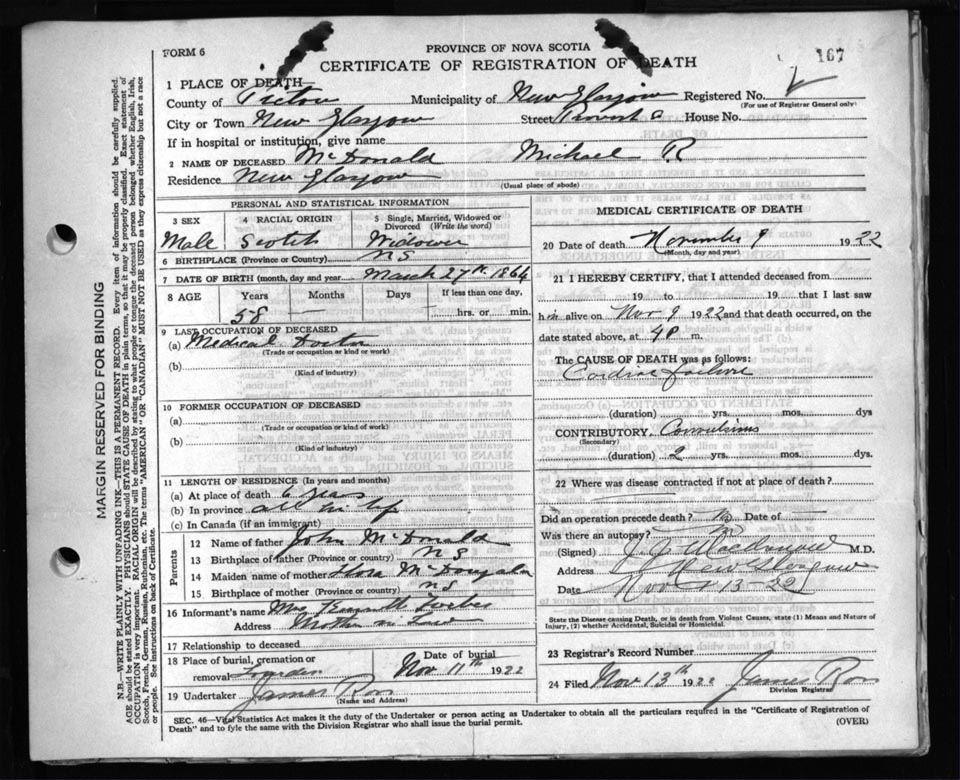 FORM 6
PROVINCE OF NOVA SCOTIA
CERTIFICATE OF REGISTRATION OF DEATH
167
1 PLACE OF DEATH
County of Pictou Municipality of New Glasgow Registered No.
(For use of Registrar General only)
City or Town New Glasgow Street Provost House No.
If in hospital or institution, give name
2 NAME OF DECEASED McDonald Michael R
Residence New Glasgow
(Usual place of abode)
PERSONAL AND STATISTICAL INFORMATION
3 SEX 4 RACIAL ORIGIN 5 Single, Married, Widowed or Divorced (Write the word)
Male Scotch Widower
6 BIRTHPLACE (Province or Country) N S
7 DATE OF BIRTH (month, day and year) March 27th 1864
8 AGE Years Months Days If less than one day,
58 — hrs. or min.
9 LAST OCCUPATION OF DECEASED
(a) Medical Doctor
(Trade or occupation or kind or work)
(b)
(Kind of industry)
10 FORMER OCCUPATION OF DECEASED
(a)
(Trade or occupation or kind or work)
(b)
(Kind of industry)
11 LENGTH OF RESIDENCE (In years and months)
(a) At place of death 6 years
(b) In province all his life
(c) In Canada (if an immigrant)
Parents
12 Name of father John McDonald
13 Birthplace of father (Province or country) N S
14 Maiden name of mother Flora McDougala
15 Birthplace of mother (Province or country) N S
16 Informant's name Mrs Forbes
Address Mother in Law
17 Relationship to deceased
18 Place of burial, cremation or removal Lourdes Date of burial Nov 11th 1922
19 Undertaker James Ross
(Name and Address)
MEDICAL CERTIFICATE OF DEATH
20 Date of death November 9 1922
(Month, day and year)
21 I HEREBY CERTIFY, that I attended deceased from
19 to 19 that I last saw
him alive on Nov 9 1922 and that death occurred, on the
date stated above, at 4P m.
The CAUSE OF DEATH was as follows:
Cardiac failure
(duration) yrs. mos. dys
CONTRIBUTORY. Convulsions
(Secondary)
(duration) 2 yrs. mos. dys.
22 Where was disease contracted if not at place of death?
Did an operation precede death? No Date of —
Was there an autopsy? No
(Signed) M.D.
Address New Glasgow
Date Nov 13 22
State the Disease causing Death, or in death from Violent Causes, state (1) Means and Nature of Injury, (2) whether Accidental, Suicidal or Homicidal.
23 Registrar's Record Number
24 Filed Nov 13th 1922 James Ross
Division Registrar
SEC. 46—Vital Statistics Act makes it the duty of the Undertaker or person acting as Undertaker to obtain all the particulars required in the "Certificate of Registration of
Death" and to fyle the same with the Division Registrar who shall issue the burial permit.
(OVER)
MARGIN RESERVED FOR BINDING
N.B.—WRITE PLAINLY WITH UNFADING INK—THIS IS A PERMANENT RECORD. Every item of information should be carefully supplied.
AGE should be stated EXACTLY. PHYSICIANS should STATE CAUSE OF DEATH in plain terms, so that it may be properly classified. Exact statement of
OCCUPATION is very important. RACIAL ORIGIN will be described by stating to what people or tongue the deceased person belonged whether English, Irish,
Scotch, French, German, Russian, Ruthenian, etc. The terms "AMERICAN" OR "CANADIAN" MUST NOT BE USED as they express citizenship but not a race
or people. See instructions on back of Certificate.